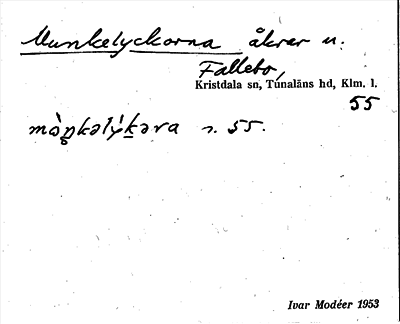 Munkelyckorna åkrar u.
Fallebo,
Kristdala sn, Tunaläns hd, Klm. l.
55
mùŋkəlýkəra s. 55.
Ivar Modéer 1953